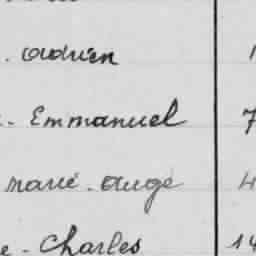 . Adrien 1
- Emmanuel 7
marie - ange 4
e - Charles 14